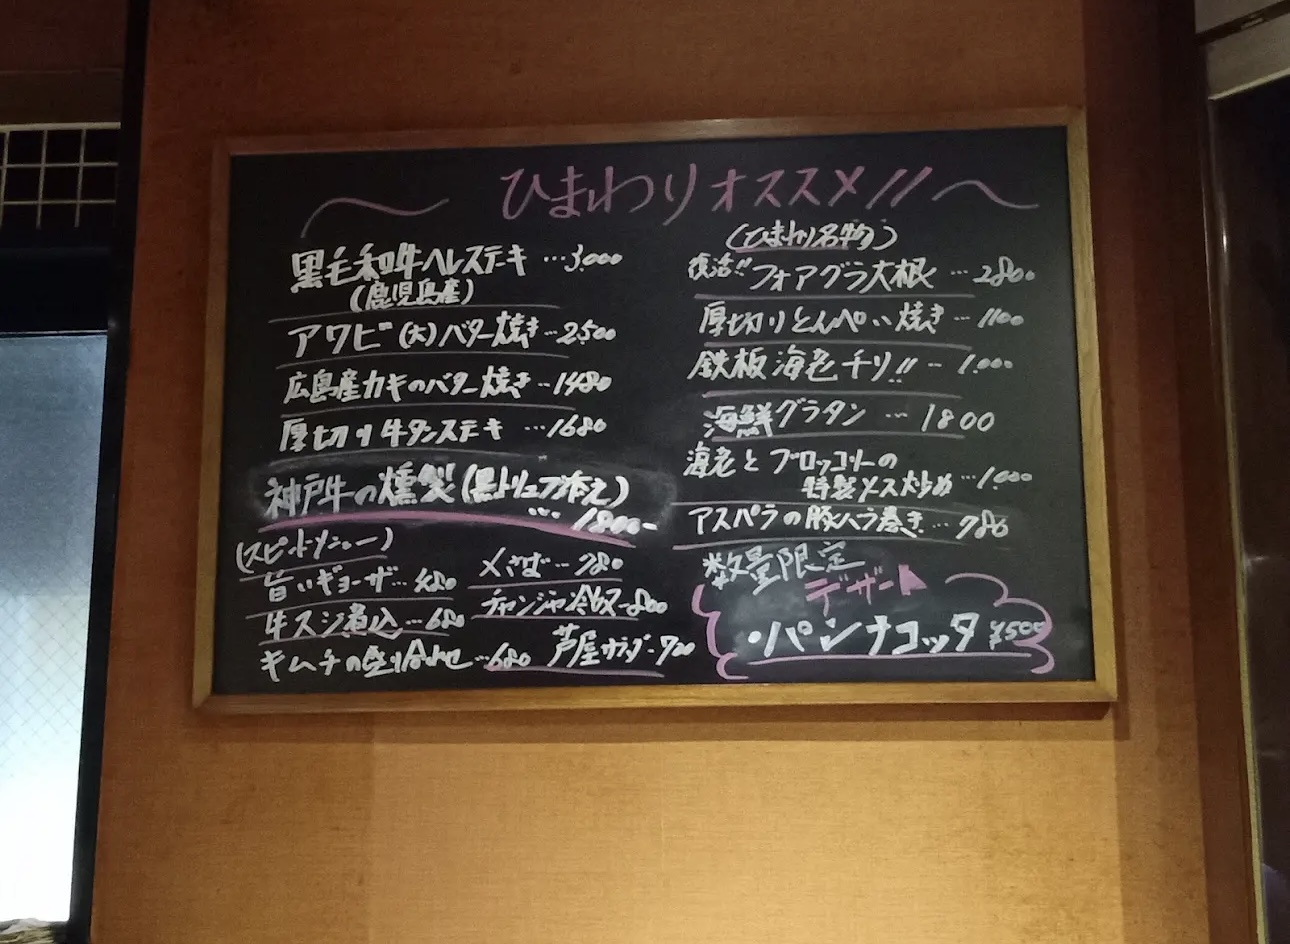 ひまわりオススメ!!
黒毛和牛ヘレステーキ …3,000
(鹿児島産)
アワビ(大)バター焼き…2,500
広島産カキのバター焼き…1480
厚切り牛タンステーキ …1680
神戸牛の燻製(黒トリュフ添え)
… 1800-
(スピードメニュー)
旨いギョーザ…480
牛スジ煮込…680
キムチの盛り合わせ…680
〆さば…780
チャンジャ冷奴…800
芦屋サラダ…700
(ひまわり名物)
復活!!フォアグラ大根 …2800
厚切りとんぺい焼き…1100
鉄板海老チリ!! …1,000
海鮮グラタン …1800
海老とブロッコリーの
特製マヨ炒め…1,000
アスパラの豚バラ巻き…780
数量限定
デザート
・パンナコッタ ¥500